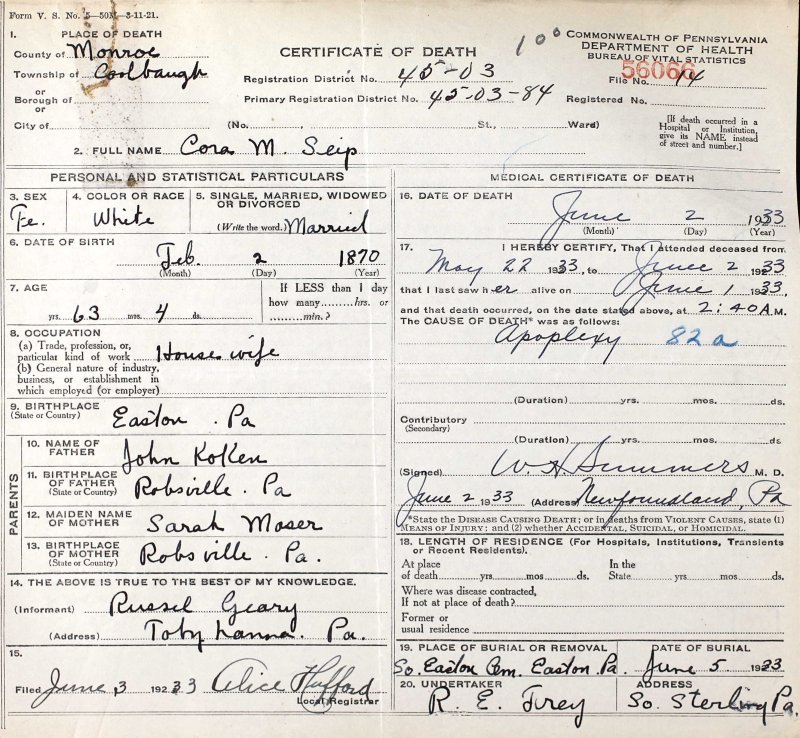 Form V. S. No. 5—50M—3-11-21.
1. PLACE OF DEATH
County of Monroe
Township of Coolbaugh
or
Borough of
or
City of (No. St., Ward)
CERTIFICATE OF DEATH
Registration District No. 45-03
Primary Registration District No. 45-03-84
100
COMMONWEALTH OF PENNSYLVANIA
DEPARTMENT OF HEALTH
BUREAU OF VITAL STATISTICS
56066
File No. 14
Registered No.
[If death occurred in a
Hospital or Institution,
give its NAME instead
of street and number.]
2. FULL NAME Cora M. Seip
PERSONAL AND STATISTICAL PARTICULARS
3. SEX
Fe.
4. COLOR OR RACE
White
5. SINGLE, MARRIED, WIDOWED
OR DIVORCED
(Write the word.) Married
6. DATE OF BIRTH
Feb. 2 1870
(Month) (Day) (Year)
7. AGE
yrs. 63 mos. 4 ds.
If LESS than 1 day
how many hrs. or
min.?
8. OCCUPATION
(a) Trade, profession, or
particular kind of work House wife
(b) General nature of industry,
business, or establishment in
which employed (or employer)
9. BIRTHPLACE
(State or Country) Easton. Pa
PARENTS
10. NAME OF
FATHER John Kolken
11. BIRTHPLACE
OF FATHER
(State or Country) Robsville. Pa
12. MAIDEN NAME
OF MOTHER Sarah Moser
13. BIRTHPLACE
OF MOTHER
(State or Country) Robsville. Pa.
14. THE ABOVE IS TRUE TO THE BEST OF MY KNOWLEDGE.
(Informant) Russel Geary
(Address) Toby hanna. Pa.
15.
Filed June 3 192 33 Alice Hufford
Local Registrar
MEDICAL CERTIFICATE OF DEATH
16. DATE OF DEATH
June 2 1933
(Month) (Day) (Year)
17. I HEREBY CERTIFY, That I attended deceased from
May 22 1933, to June 2 1933
that I last saw her alive on June 1 1933,
and that death occurred, on the date stated above, at 2:40 A.M.
The CAUSE OF DEATH* was as follows:
Apoplexy 82a
(Duration) yrs. mos. ds.
Contributory
(Secondary)
(Duration) yrs. mos. ds.
(Signed) W. H. Summers M. D.
June 2 1933 (Address) Newfoundland, Pa
*State the DISEASE CAUSING DEATH; or in deaths from VIOLENT CAUSES, state (1)
MEANS OF INJURY; and (2) whether ACCIDENTAL, SUICIDAL, or HOMICIDAL.
18. LENGTH OF RESIDENCE (For Hospitals, Institutions, Transients
or Recent Residents).
At place In the
of death yrs. mos. ds. State yrs. mos. ds.
Where was disease contracted,
If not at place of death?
Former or
usual residence
19. PLACE OF BURIAL OR REMOVAL
So. Easton Cem. Easton. Pa.
DATE OF BURIAL
June 5 1933
20. UNDERTAKER
R. E. Frey
ADDRESS
So. Sterling Pa.